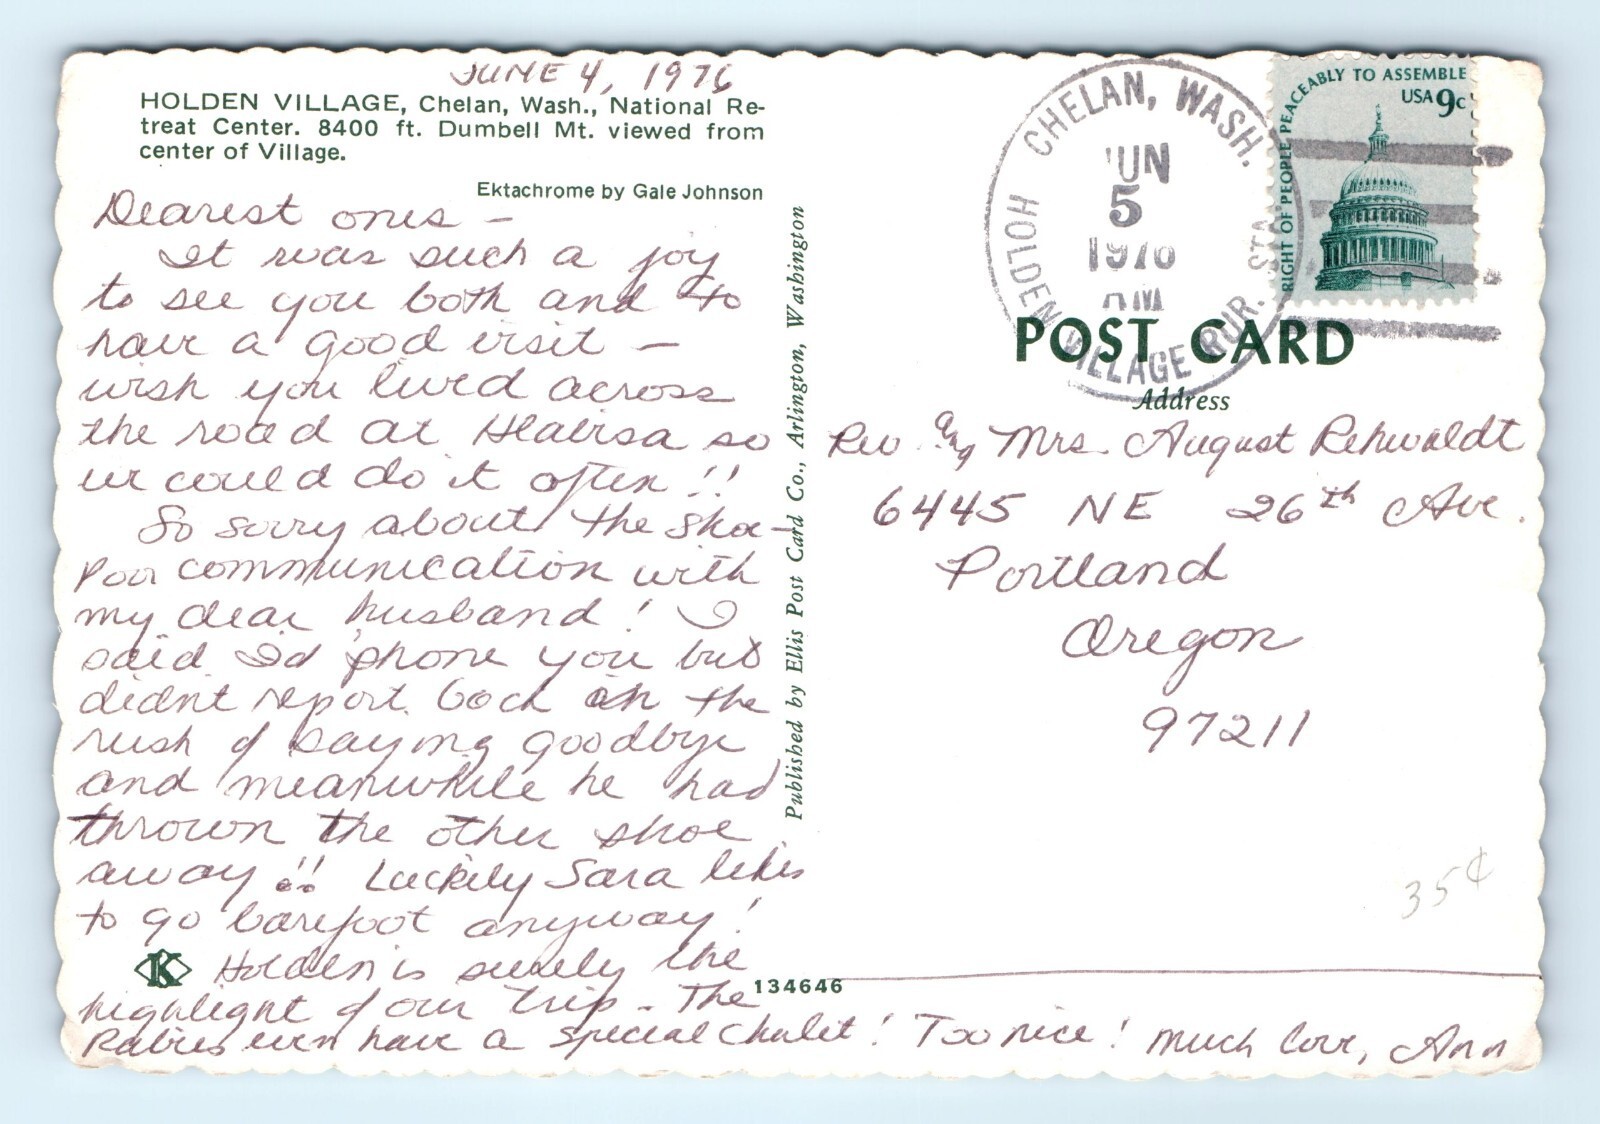 JUNE 4, 1976
HOLDEN VILLAGE, Chelan, Wash., National Re-
treat Center. 8400 ft. Dumbell Mt. viewed from
center of Village.
Ektachrome by Gale Johnson
Dearest ones -
It was such a joy
to see you both and to
have a good visit -
wish you lived across
the road at Hlabisa so
we could do it often !!
So sorry about the shoe -
Poor communication with
my dear husband! I
said I'd phone you but
didn't report back in the
rush of saying goodbye
and meanwhile he had
thrown the other shoe
away !! Luckily Sara likes
to go barefoot anyway!
Holden is surely the
highlight of our trip - The
Rabies even have a Special Chalet! Too nice! Much love, Ann
K
134646
Published by Ellis Post Card Co., Arlington, Washington
CHELAN, WASH.
HOLDEN VILLAGE RUR. STA.
JUN
5
1976
AM
RIGHT OF PEOPLE PEACEABLY TO ASSEMBLE
USA 9c
POST CARD
Address
Rev. and Mrs. August Rehwaldt
6445 NE 26th Ave.
Portland
Oregon
97211
35¢